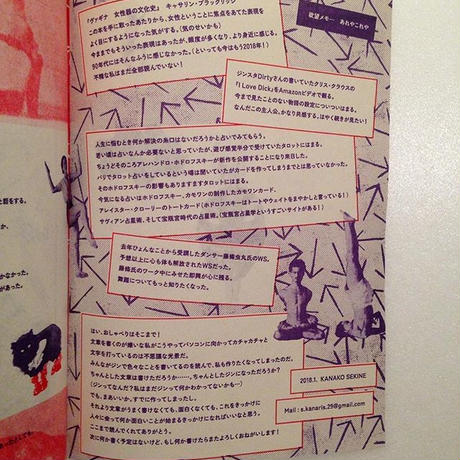 欲望メモ― あれやこれや
『ヴァギナ 女性器の文化史』 キャサリン・ブラックリッジ
この本を手に取ったあたりから、女性ということに焦点をあてた表現を
よく目にするようになった気がする。（気のせいかも）
今までもそういった表現はあったが、頻度が多くなり、より身近に感じる。
90年代にはそんなふうに感じなかった。（といっても今はもう2018年！）
不穏な私はまだ全部読んでいない！
ジンスタDirtyさんの書いていたクリス・クラウスの
『I Love Dick』をAmazonビデオで観る。
今まで見たことのない物語の設定についついはまる。
なんだこの主人公。かなり共感する。はやく続きが見たい！
人生に悩むとき何か解決の糸口はないだろうかと占いでみてもらう。
若い頃は占いなんか必要ないと思っていたが、遊び感覚半分で受けていたタロットにはまる。
ちょうどそのころアレハンドロ・ホドロフスキーが新作を公開することになり来日した。
パリでタロット占いをしているという噂は聞いていたがカードを作ってしまうまでとは思っていなかった。
そのホドロフスキーの影響もありますますタロットにはまる。
今気になる占いはホドロフスキー、カモワンの制作したカモワンカード。
アレイスター・クローリーのトートカード（ホドロフスキーはトートやウェイトをまやかしと言っている！）
サヴィアン占星術。そして宝瓶宮時代の占星術。（宝瓶宮占星学というすごいサイトがある！）
去年ひょんなことから受講したダンサー藤條虫丸氏のWS。
予想以上に心も体も解放されたWSだった。
藤條氏のワーク中にみせた即興が心に残る。
舞踏についてもっと知りたくなった。
はい、おしゃべりはそこまで！
文章を書くのが嫌いな私がこうやってパソコンに向かってカチャカチャと
文字を打っているのは不思議な光景だ。
みんながジンで色々なことを書いてるのを読んで、私も作りたくなってしまったのだ。
ちゃんとした文章は書けただろうか……。ちゃんとしたジンになっただろうか？
（ジンってなんだ？私はまだジンって何かわかってないかも…）
でも、まあいいか。すでに作ってしまたし。
それより文章がうまく書けなくても、面白くなくても、これをきっかけに
人々に会って何か面白いことが始まるきっかけになればいいなと思う。
ここまで読んでくれてありがとう。
次に何か書く予定はないけど、もし何か書けたらまたよろしくおねがいします！
2018.1. KANAKO SEKINE
Mail : s.kanaris.29@gmail.com